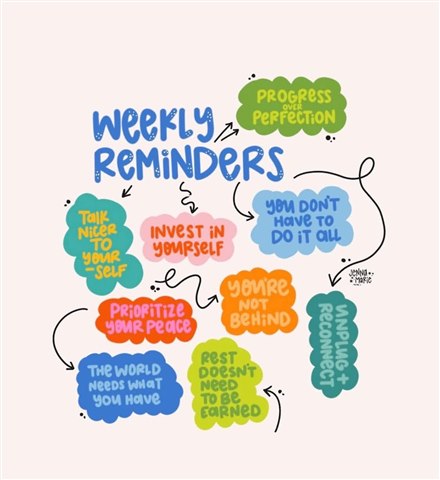 WEEKLY
REMINDERS
PROGRESS
OVER
PERFECTION
TALK
NICER
TO
YOUR
-SELF
INVEST IN
YOURSELF
YOU DON'T
HAVE TO
DO IT ALL
PRIORITIZE
YOUR PEACE
YOU'RE
NOT
BEHIND
UNPLUG +
RECONNECT
JENNA
MARIE
THE WORLD
NEEDS WHAT
YOU HAVE
REST
DOESN'T
NEED
TO BE
EARNED